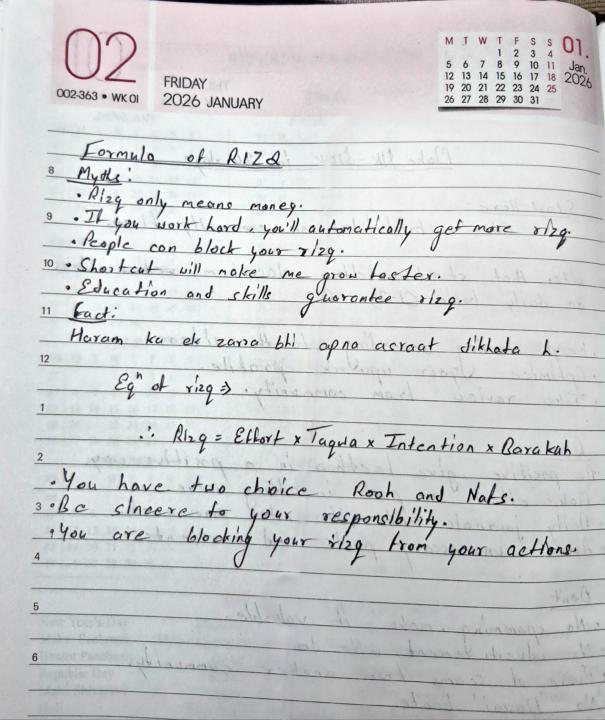 02
002-363 • WK 01
FRIDAY
2026 JANUARY
M T W T F S S
1 2 3 4
5 6 7 8 9 10 11
12 13 14 15 16 17 18
19 20 21 22 23 24 25
26 27 28 29 30 31
01.
Jan
2026
Formula of RIZQ
8 Myths:
• Rizq only means money.
9 • If you work hard, you'll automatically get more rizq.
• People can block your rizq.
10 • Shortcut will make me grow faster.
• Education and skills guarantee rizq.
11 Fact:
Haram ka ek zarra bhi apna asraat dikhata h.
12
Eqⁿ of rizq ⇒
1
∴ Rizq = Effort x Taqwa x Intention x Barakah
2
• You have two choice Rooh and Nafs.
3 • Be sincere to your responsibility.
• You are blocking your rizq from your actions.
4
5
6